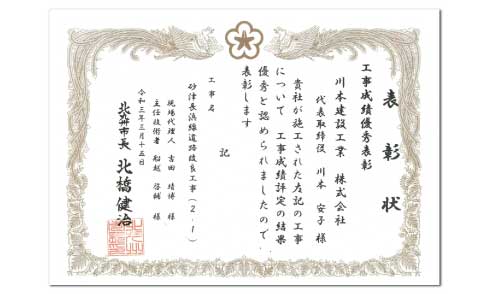 表彰状
工事成績優秀表彰
川本建設工業 株式会社
代表取締役 川本 安子 様
貴社が施工された左記の工事
について 工事成績評定の結果
優秀と認められましたので
表彰します
記
工事名
砂津長浜線道路改良工事(2-1)
現場代理人 吉田 靖博 様
主任技術者 船越 啓輔 様
令和三年三月十五日
北九州市長 北橋健治